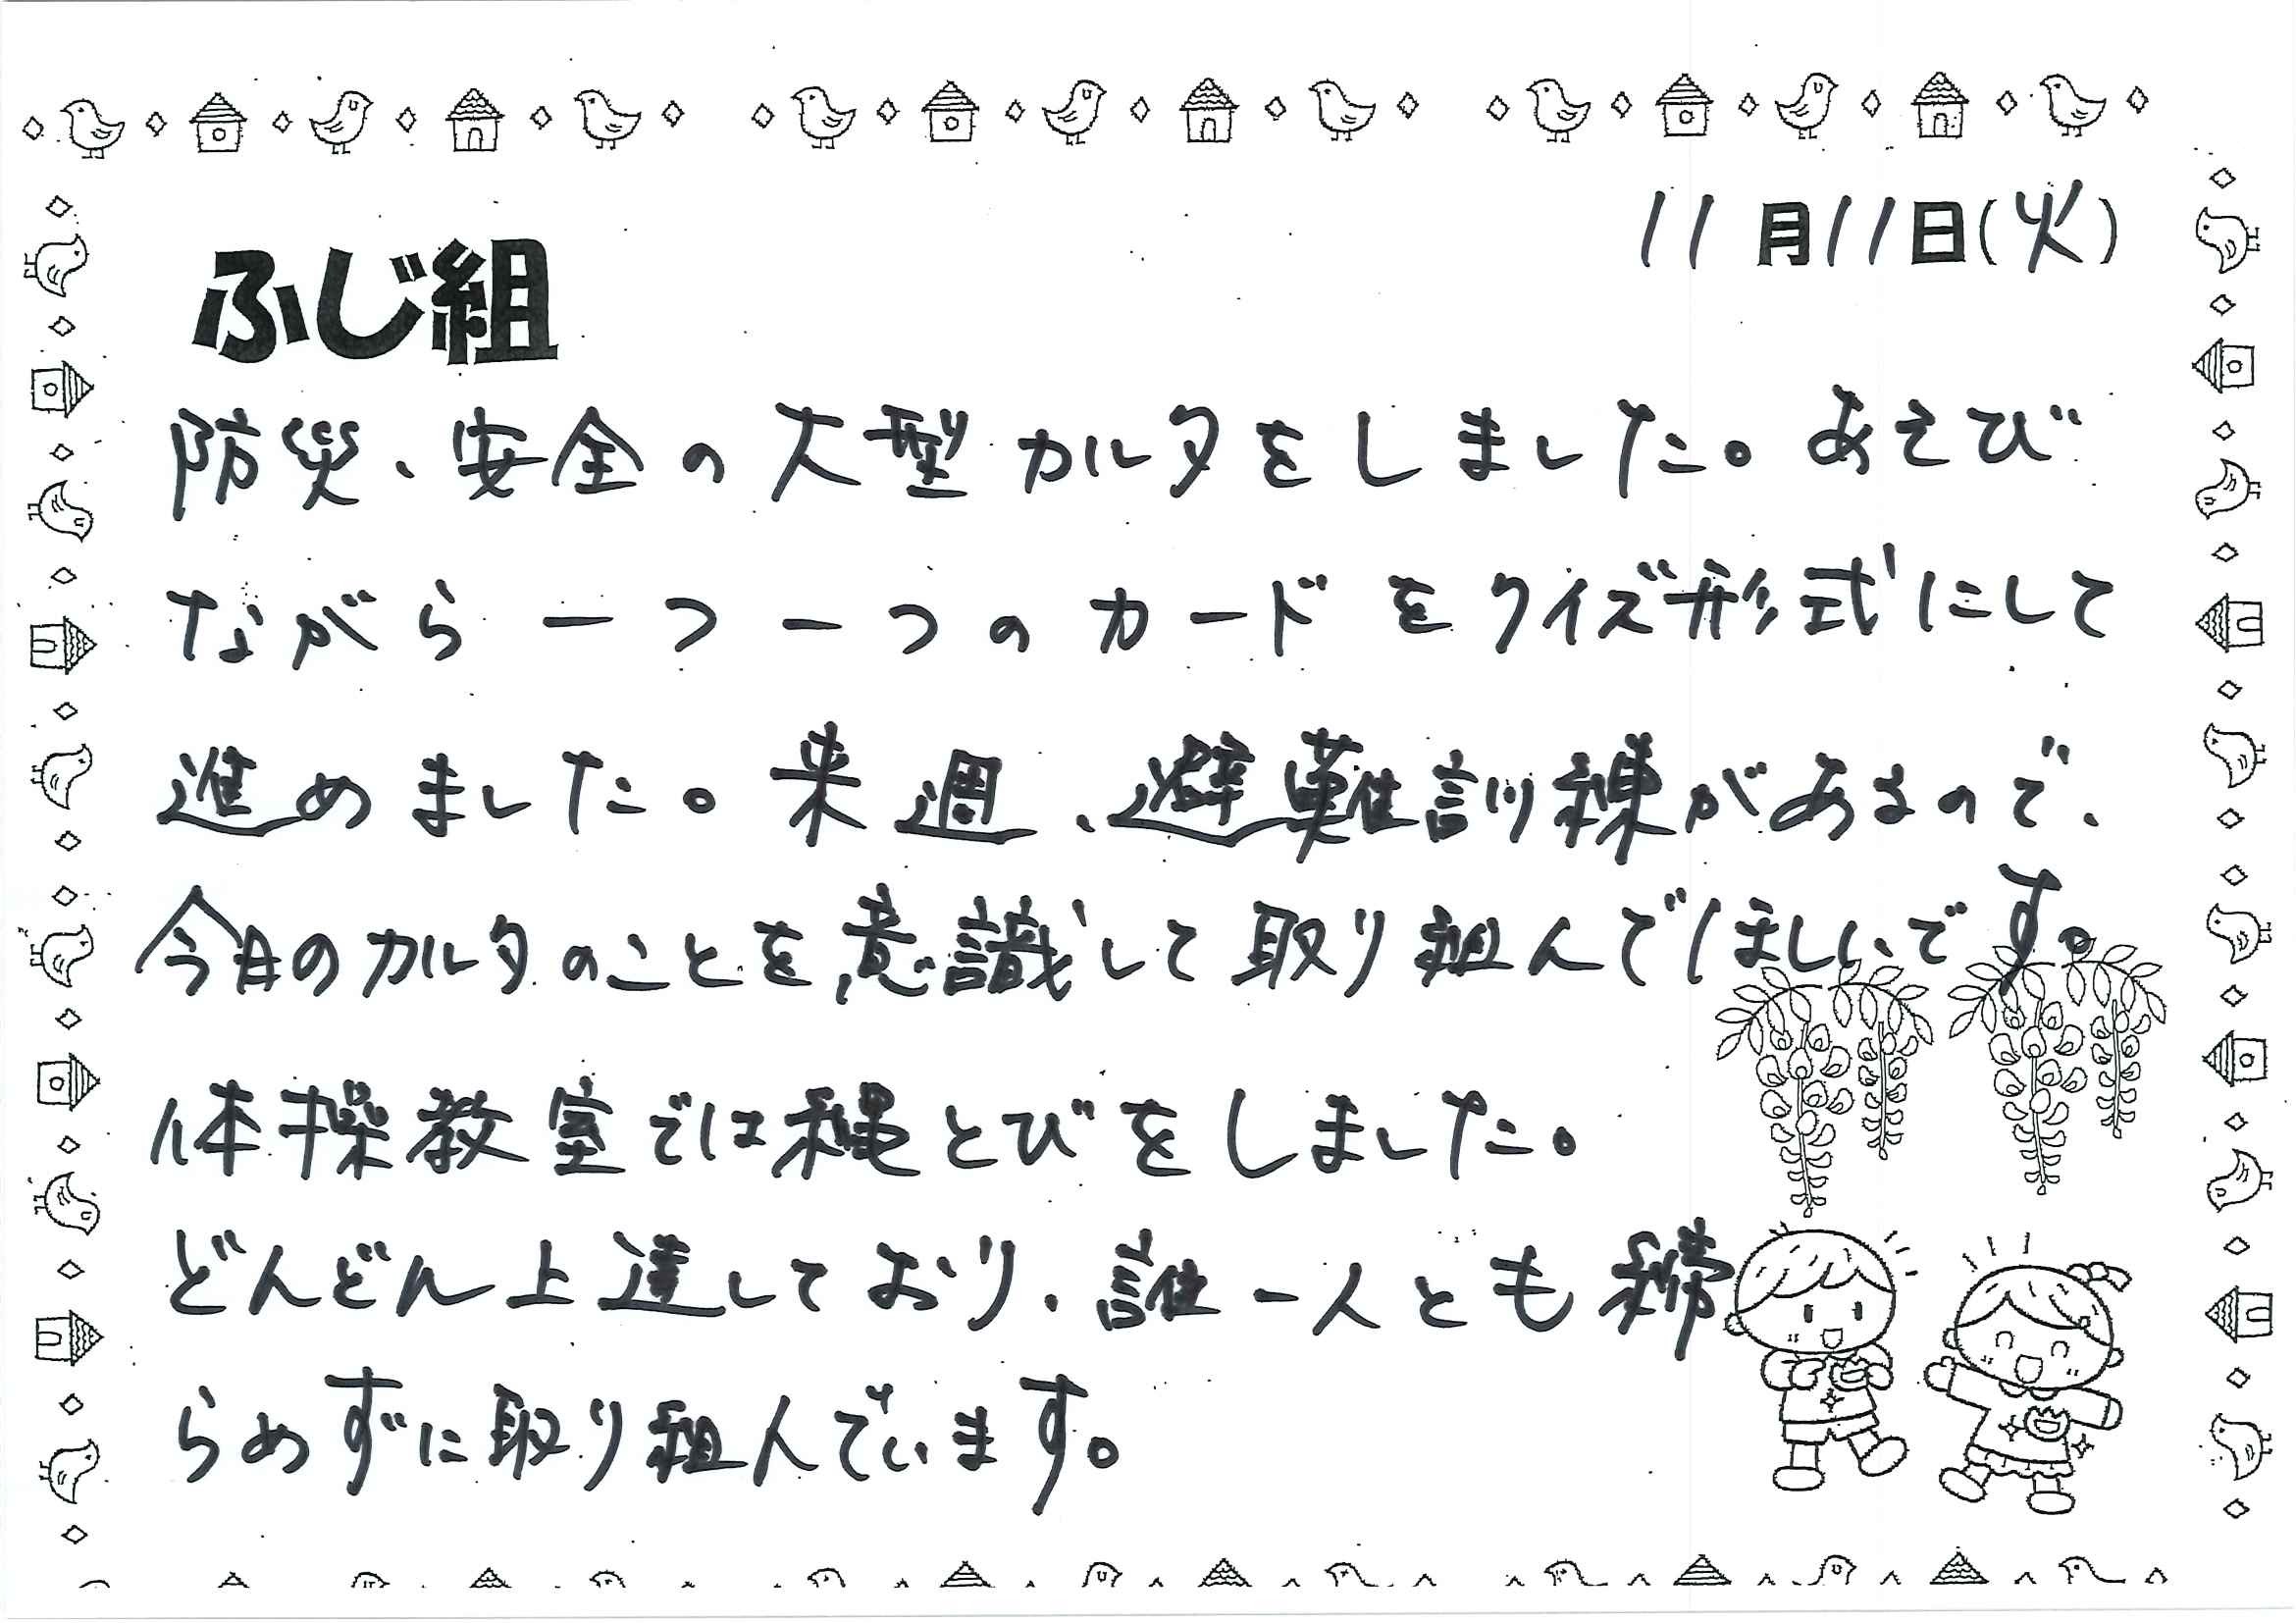 11月11日(火)
ふじ組
防災、安全の大型カルタをしました。あそび
ながら一つ一つのカードをクイズ形式にして
進めました。来週、避難訓練があるので、
今日のカルタのことを意識して取り組んでほしいです。
体操教室では縄とびをしました。
どんどん上達しており、誰一人とも締
らめずに取り組んでいます。